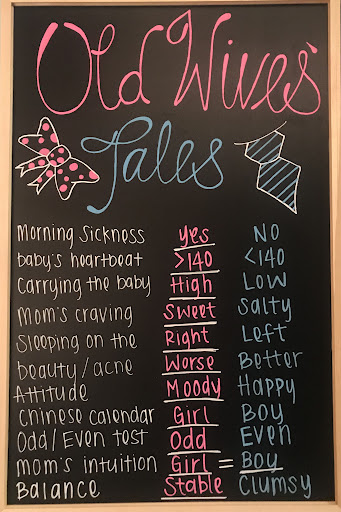 Old Wives'
Tales
Morning Sickness yes NO
baby's heartbeat >140 <140
Carrying the baby High Low
Mom's craving Sweet Salty
Sleeping on the Right Left
beauty/acne Worse Better
Attitude Moody Happy
Chinese calendar Girl Boy
Odd/Even test Odd Even
mom's intuition Girl = Boy
Balance Stable Clumsy